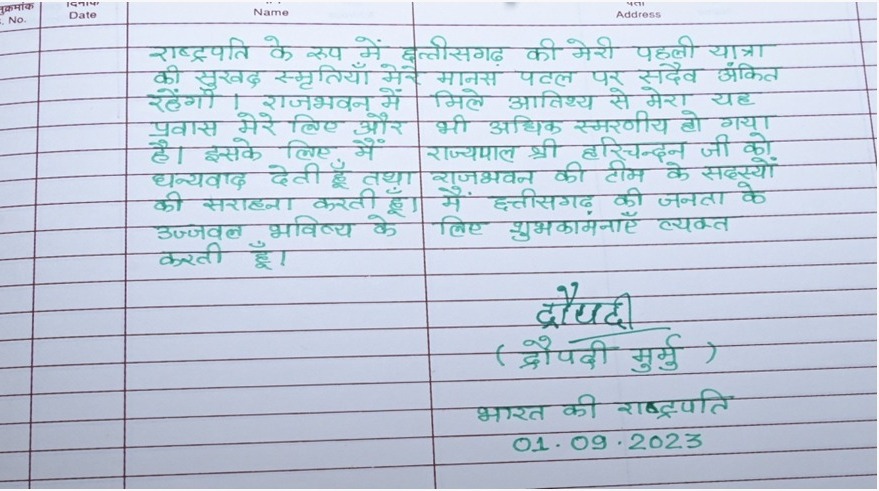 क्रमांक दिनांक
S. No. Date Name Address
राष्ट्रपति के रूप में छत्तीसगढ़ की मेरी पहली यात्रा
की सुखद स्मृतियाँ मेरे मानस पटल पर सदैव अंकित
रहेंगी । राजभवन में मिले आतिथ्य से मेरा यह
प्रवास मेरे लिए और भी अधिक स्मरणीय हो गया
है। इसके लिए मैं राज्यपाल श्री हरिचन्दन जी को
धन्यवाद देती हूँ तथा राजभवन की टीम के सदस्यों
की सराहना करती हूँ। मैं छत्तीसगढ़ की जनता के
उज्जवल भविष्य के लिए शुभकामनाएँ व्यक्त
करती हूँ।
द्रौपदी
( द्रौपदी मुर्मु )
भारत की राष्ट्रपति
01.09.2023